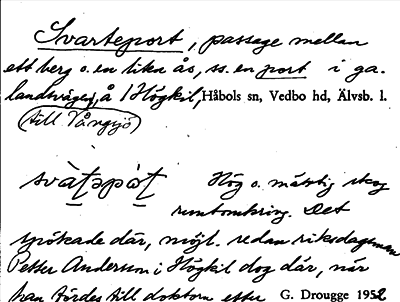 Svarteport, passage mellan
ett berg o. en liten ås, ss. en port i ga.
landsvägen å 1 Högkil, Håbols sn, Vedbo hd, Älvsb. l.
(till Vångsjö)
svàt̠əpòt̠ Hög o. mäktig skog
runtomkring. Det
spökade där, möjl. redan riksdagsman
Petter Andersson i Högkil dog där, när
han fördes till doktorn efter G. Drougge 1952